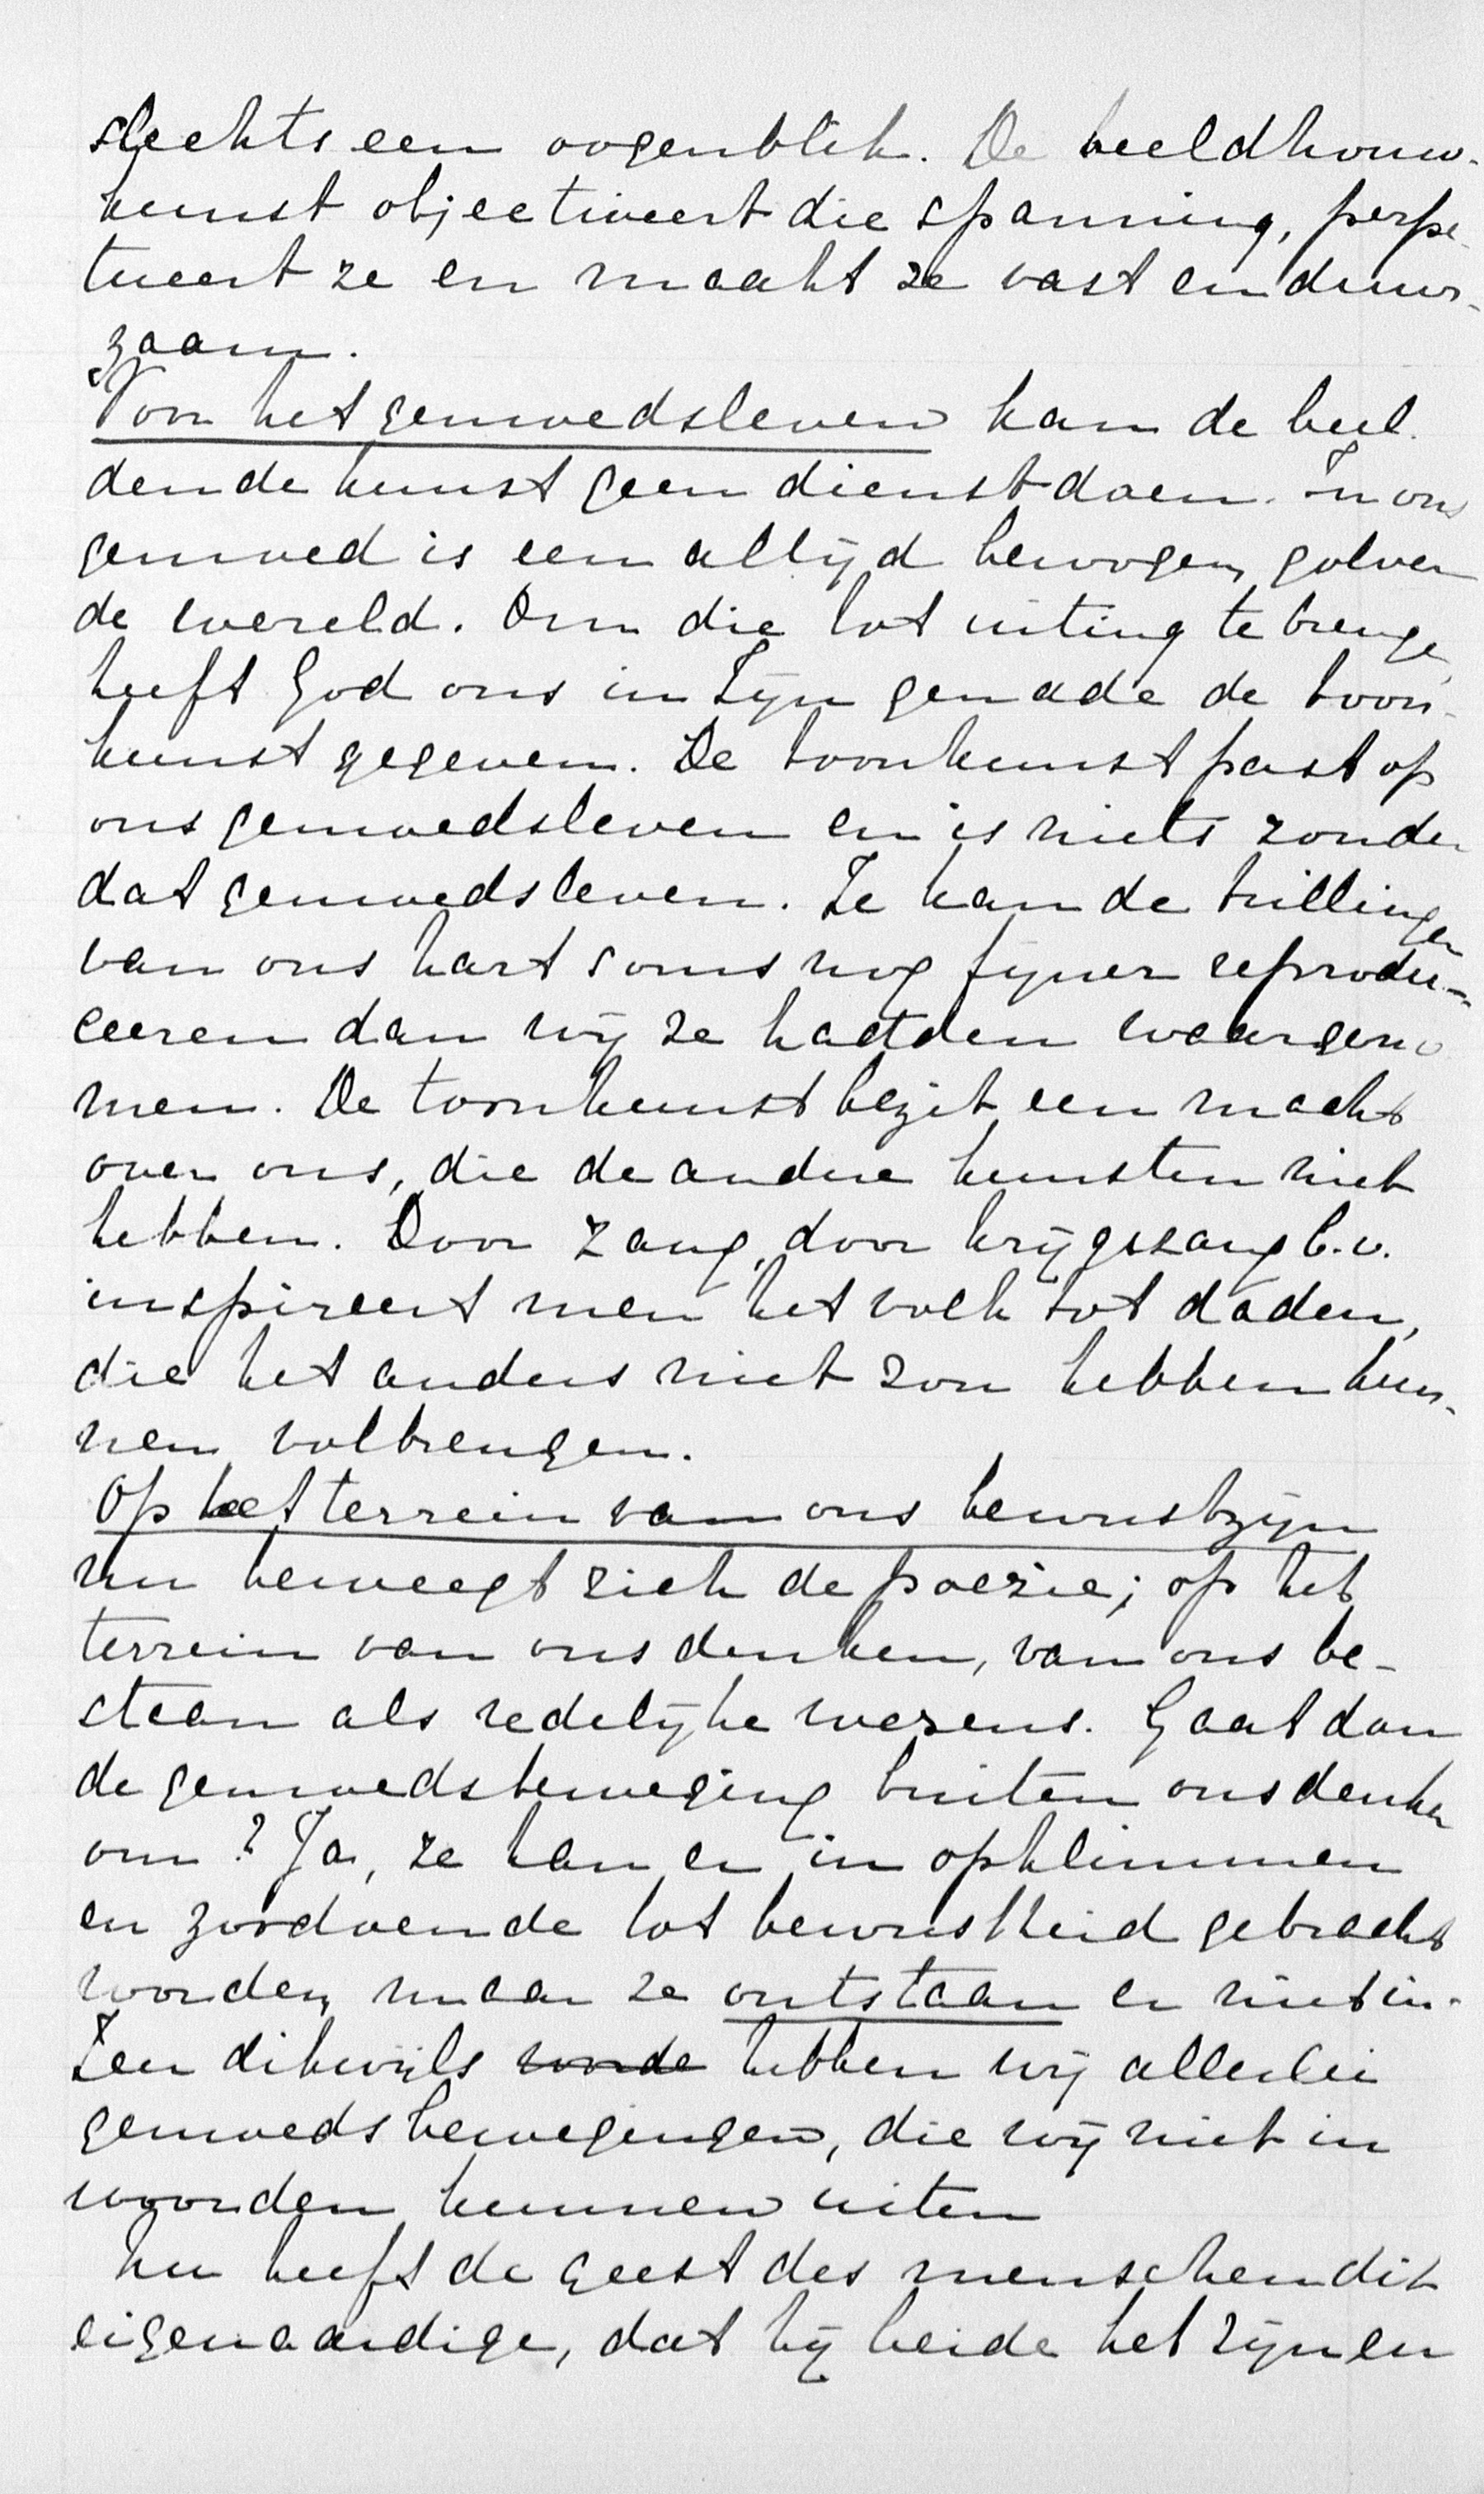 slechts een oogenblik. De beeldhouw-
kunst objectiveert die spanning, perpe-
tueert ze en maakt ze vast en duur-
zaam.
Voor het gemoedsleven kan de beel-
dende kunst geen dienst doen. In ons
gemoed is een altijd bewogen, golven
de wereld. Om die tot uiting te brenge
heeft God ons in Zijn genade de toon-
kunst gegeven. De toonkunst past op
ons gemoedsleven en is niets zonder
dat gemoedsleven. Ze kan de trillingen
van ons hart soms nog fijner reprodu-
ceeren dan wij ze hadden waargeno
men. De toonkunst bezit een macht
over ons, die de andere kunsten niet
hebben. Door zang, door krijgszang b.v.
inspireert men het volk tot daden,
die het anders niet zou hebben kun-
nen volbrengen.
Op het terrein van ons bewustzijn
nu beweegt zich de poezie; op het
terrein van ons denken, van ons be-
staan als redelijke wezens. Gaat dan
de gemoedsbeweging buiten ons denken
om? Ja, ze kan er in opklimmen
en zoodoende tot bewustheid gebracht
worden, maar ze ontstaan er niet in.
Zeer dikwijls worde hebben wij allerlei
gemoedsbewegingen, die wij niet in
woorden kunnen uiten
Nu heeft de geest des menschen dit
eigenaardige, dat hij beide het zijn en